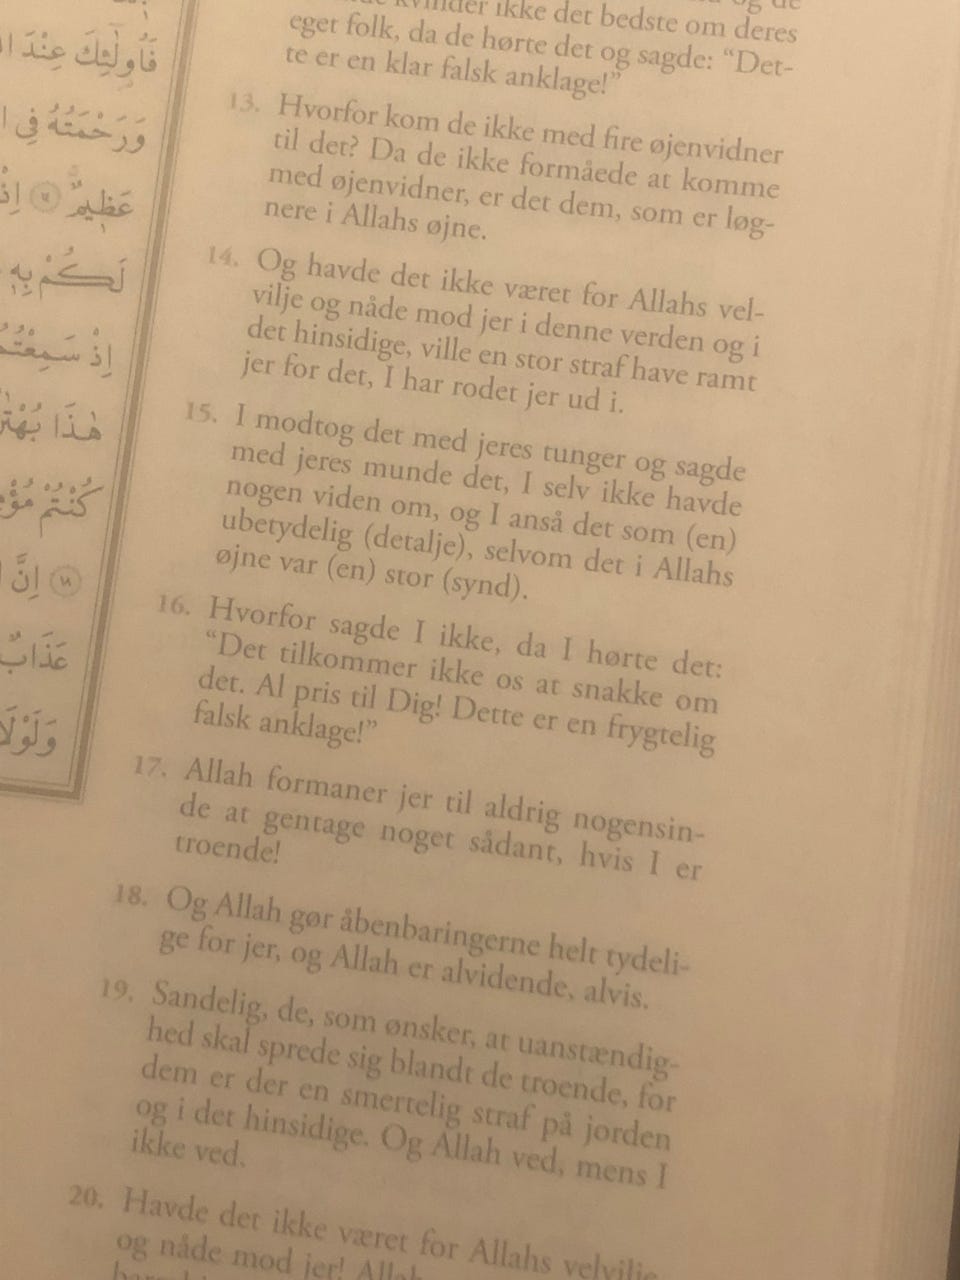 فَأُولَٰئِكَ عِنْدَ
وَرَحْمَتُهُ فِي
عَظِيمٌ ١٤ إِذْ
لَكُمْ بِهِ
إِذْ سَمِعْتُمُوهُ
هَٰذَا بُهْتَانٌ
كُنْتُمْ
١٨ إِنَّ
عَذَابٌ
وَلَوْلَا
kvinder ikke det bedste om deres
eget folk, da de hørte det og sagde: “Det-
te er en klar falsk anklage!”
13. Hvorfor kom de ikke med fire øjenvidner
til det? Da de ikke formåede at komme
med øjenvidner, er det dem, som er løg-
nere i Allahs øjne.
14. Og havde det ikke været for Allahs vel-
vilje og nåde mod jer i denne verden og i
det hinsidige, ville en stor straf have ramt
jer for det, I har rodet jer ud i.
15. I modtog det med jeres tunger og sagde
med jeres munde det, I selv ikke havde
nogen viden om, og I anså det som (en)
ubetydelig (detalje), selvom det i Allahs
øjne var (en) stor (synd).
16. Hvorfor sagde I ikke, da I hørte det:
“Det tilkommer ikke os at snakke om
det. Al pris til Dig! Dette er en frygtelig
falsk anklage!”
17. Allah formaner jer til aldrig nogensin-
de at gentage noget sådant, hvis I er
troende!
18. Og Allah gør åbenbaringerne helt tydeli-
ge for jer, og Allah er alvidende, alvis.
19. Sandelig, de, som ønsker, at uanstændig-
hed skal sprede sig blandt de troende, for
dem er der en smertelig straf på jorden
og i det hinsidige. Og Allah ved, mens I
ikke ved.
20. Havde det ikke været for Allahs velvilje
og nåde mod jer! Allah